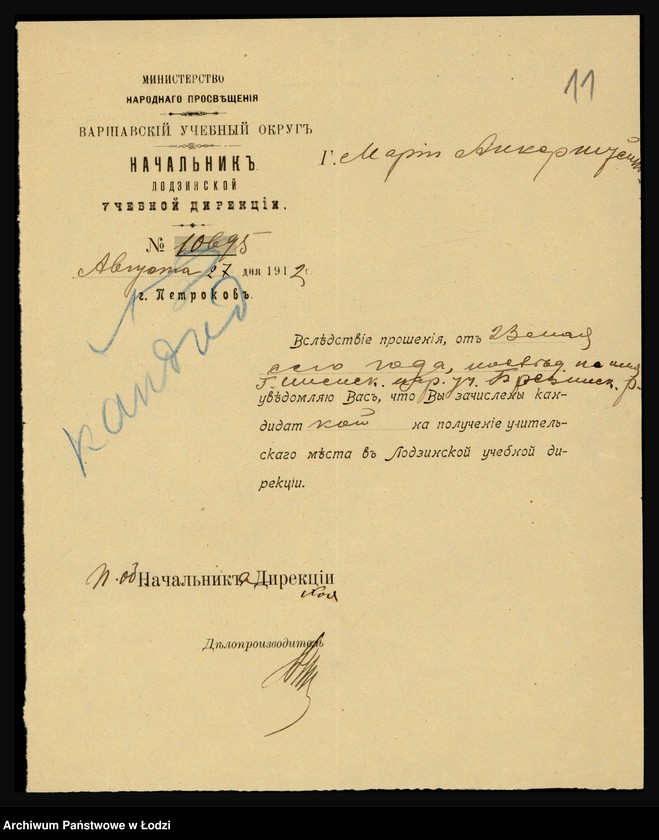 11
МИНИСТЕРСТВО
НАРОДНАГО ПРОСВѢЩЕНІЯ
ВАРШАВСКІЙ УЧЕБНЫЙ ОКРУГЪ
НАЧАЛЬНИКЪ
ЛОДЗИНСКОЙ
УЧЕБНОЙ ДИРЕКЦІИ.
№ 10695
Августа 27 дня 1912 г.
г. Петроковъ.
Г. Маріи
кандид
Вслѣдствіе прошенія, отъ 23 мая
сего года,
уч. Брезинск.
увѣдомляю Васъ, что Вы зачислены кан-
дидат кой на полученіе учитель-
скаго мѣста въ Лодзинской учебной ди-
рекціи.
И. об. Начальника Дирекціи
Дѣлопроизводитель
Archiwum Państwowe w Łodzi